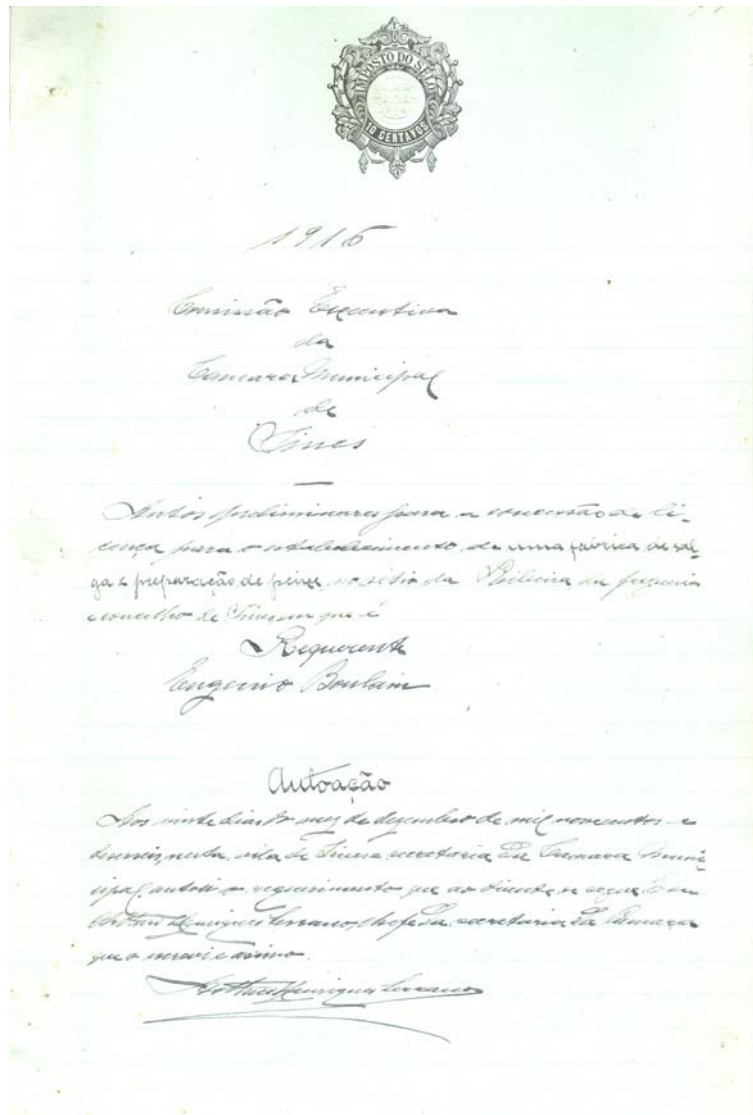 IMPOSTO DO SELO
10 CENTAVOS
1916
Comissão Executiva
da
Camara Municipal
de
Sines
Autos preliminares para a concessão de li-
cença para o estabelecimento de uma fabrica de sal-
ga e preparação de peixe, no sitio da Ribeira, da freguesia
e concelho de Sines, em que é
Requerente
Eugenio Boulain
Autoação
Aos vinte dias do mez de dezembro de mil novecentos e
dezesseis, nesta vila de Sines e secretaria da Camara Muni-
cipal, autoei o requerimento que ao diante se segue. E eu
Arthur Henriques Serrano, chefe da secretaria da Câmara
que o escrevi e assino.
Arthur Henriques Serrano